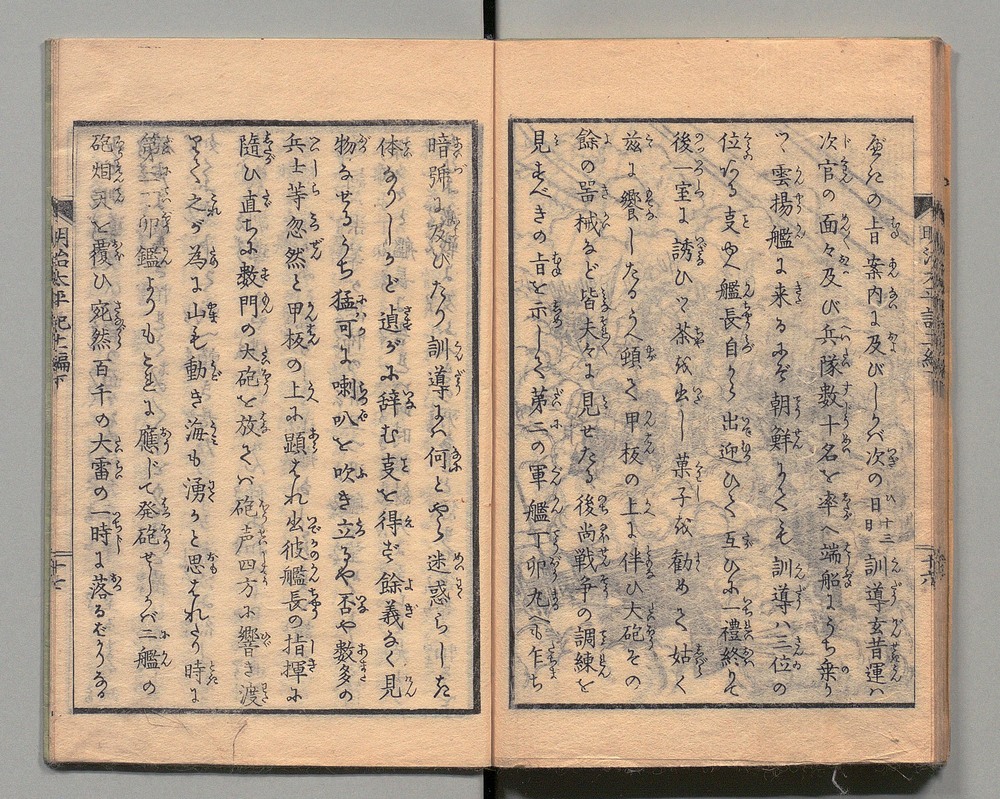 の旨案内に及びしかバ次の日十三日訓導玄昔運ハ
次官の面々及び兵隊数十名を率へ端船にうち乗り
て雲揚艦に来るにぞ朝鮮にてハ訓導ハ三位の
位なる故艦長自から出迎ひて互ひに一禮終りて
後一室に誘ひて茶を出し菓子を勧めて姑く
茲に饗したるうへ頓て甲板の上に伴ひ大砲その
餘の器械など皆夫々に見せたる後尚戦争の調練を
見すべきの旨を示して第二の軍艦丁卯丸へも乍ち
暗號に及びたり訓導ハ何とやら迷惑らしき
体なりしかど遉がに辞む事を得ず餘義なく見
物なせるうち猛可に喇叭を吹き立るや否や数多の
兵士等忽然と甲板の上に顕はれ出彼艦長の指揮に
隨ひ直ちに数門の大砲を放てバ砲声四方に響き渡
りて之が為に山も動き海も湧かと思はれたり時に
第二丁卯鑑よりもともに應じて発砲せしかバ二艦の
砲烟天を覆ひ宛然百千の大雷の一時に落るばかりなる
明治太平記十一編下